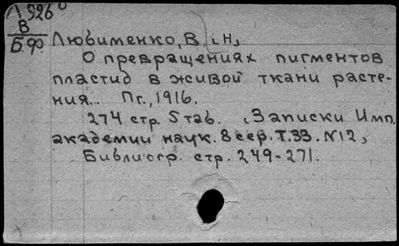 1526
В
Б.Ф.
Любименко, В. Н.
О превращениях пигментов
пластид в живой ткани расте-
ния.. Пг., 1916.
274 стр. 5 таб. (Записки Имп.
академии наук. 8 сер. Т. 33. №12)
Библиогр. стр. 249-271.